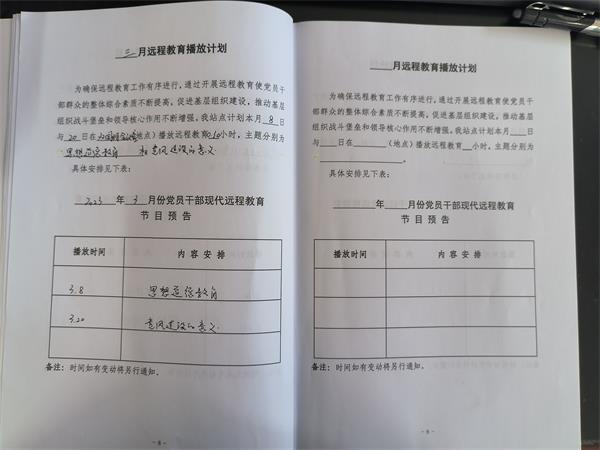 三 月远程教育播放计划
为确保远程教育工作有序进行，通过开展远程教育使党员干
部群众的整体综合素质不断提高，促进基层组织建设，推动基层
组织战斗堡垒和领导核心作用不断增强。我站点计划本月 8 日
与 20 日在 （地点）播放远程教育 小时，主题分别为
思想道德教育 和 党风建设的意义
具体安排见下表：
2023 年 3 月份党员干部现代远程教育
节目预告
播放时间 内容安排
3.8 思想道德教育
3.20 党风建设的意义
备注：时间如有变动将另行通知。
- 8 -
月远程教育播放计划
为确保远程教育工作有序进行，通过开展远程教育使党员干
部群众的整体综合素质不断提高，促进基层组织建设，推动基层
组织战斗堡垒和领导核心作用不断增强。我站点计划本月 日
与 日在 （地点）播放远程教育 小时，主题分别为
。
具体安排见下表：
年 月份党员干部现代远程教育
节目预告
播放时间 内容安排
备注：时间如有变动将另行通知。